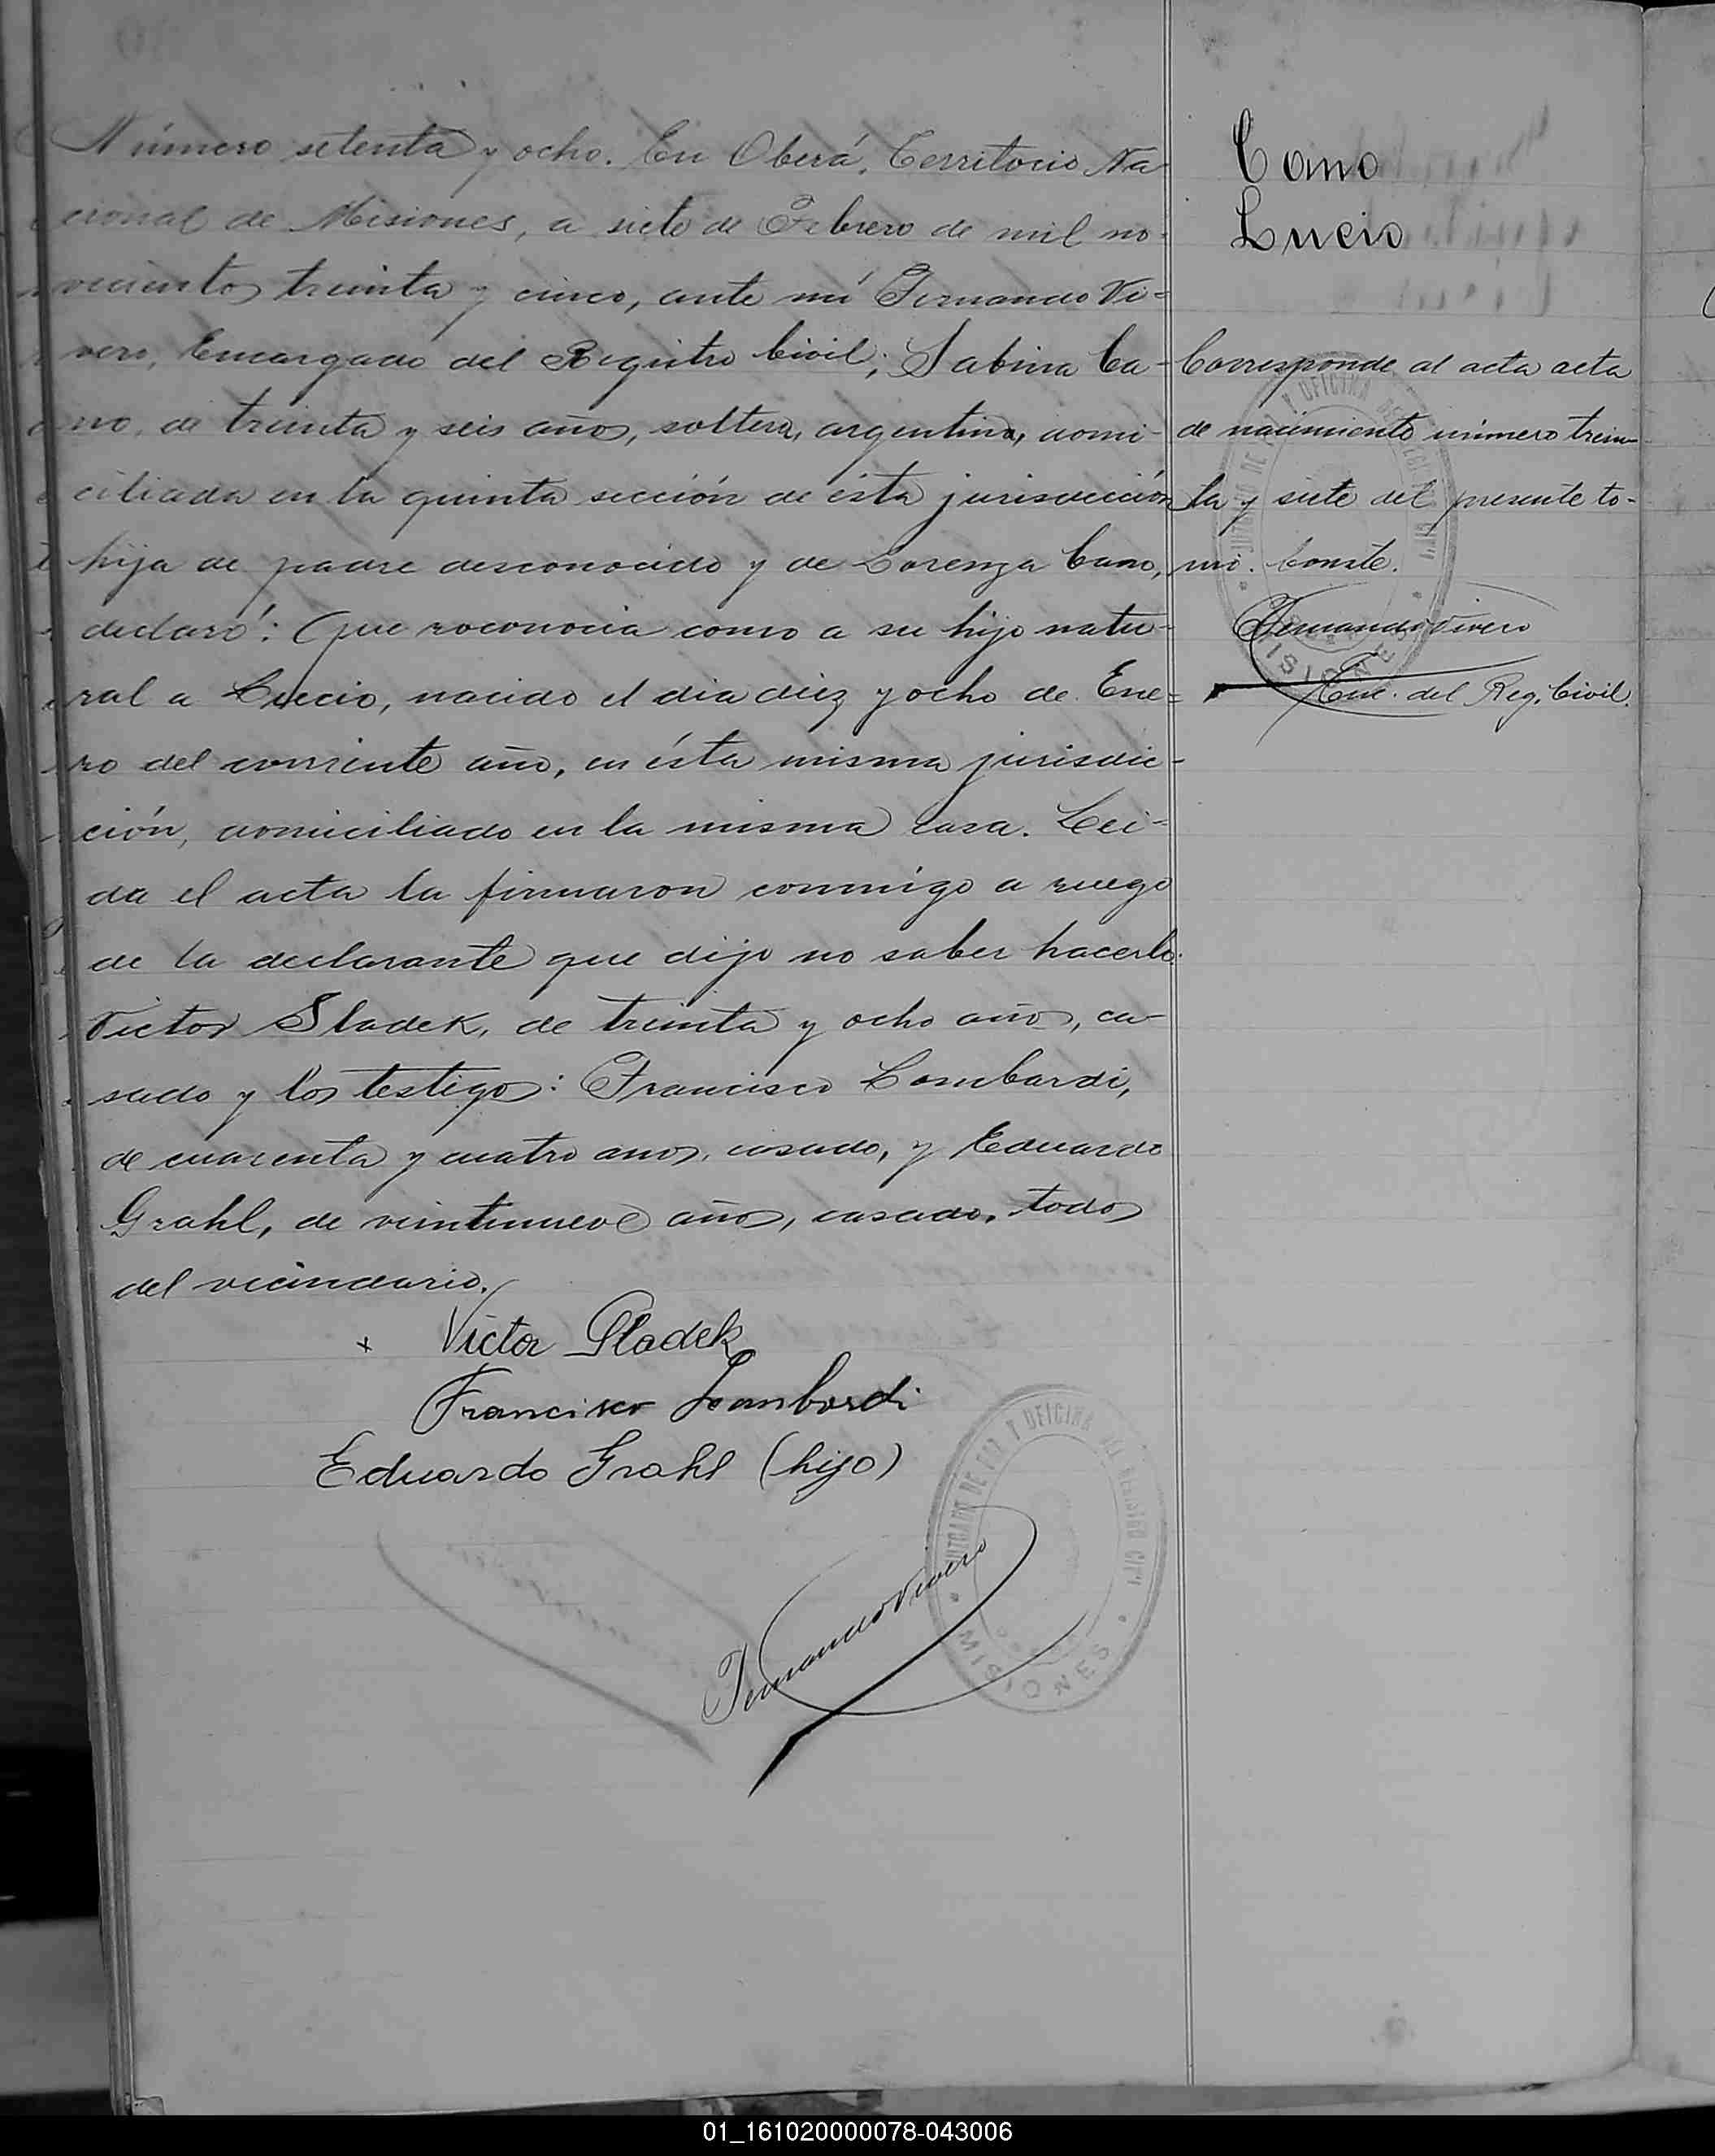 Número setenta y ocho. En Oberá, Territorio Na-
cional de Misiones, a siete de Febrero de mil no-
vecientos treinta y cinco, ante mí Fernando Vi=
vero, Encargado del Registro Civil; Sabina Ca-
no, de treinta y seis años, soltera, argentina, domi-
ciliada en la quinta sección de ésta jurisdicción
hija de padre desconocido y de Lorenza Cano,
declaró: Que roconocia como a su hijo natu-
ral a Lucio, nacido el dia diez y ocho de Ene=
ro del corriente año, en ésta misma jurisdic-
ción, domiciliado en la misma casa. Lei=
da el acta la firmaron conmigo a ruego
de la declarante que dijo no saber hacerlo:
Victor Sladek, de treinta y ocho años, ca-
sado y los testigos: Francisco Lombardi,
de cuarenta y cuatro anos, casado, y Eduardo
Grahl, de veintinueve años, casado, todos
del vecindario.
x Victor Sladek
Francisco Lombardi
Eduardo Grahl (hijo)
Fernando Vivero
JUZGADO DE PAZ Y OFICINA DEL REGISTRO CIVIL
MISIONES
Cano
Lucio
Corresponde al acta acta
de nacimiento número trein-
ta y siete del presente to-
mo. Conste.
Fernando Vivero
Enc. del Reg. Civil.
01_161020000078-043006